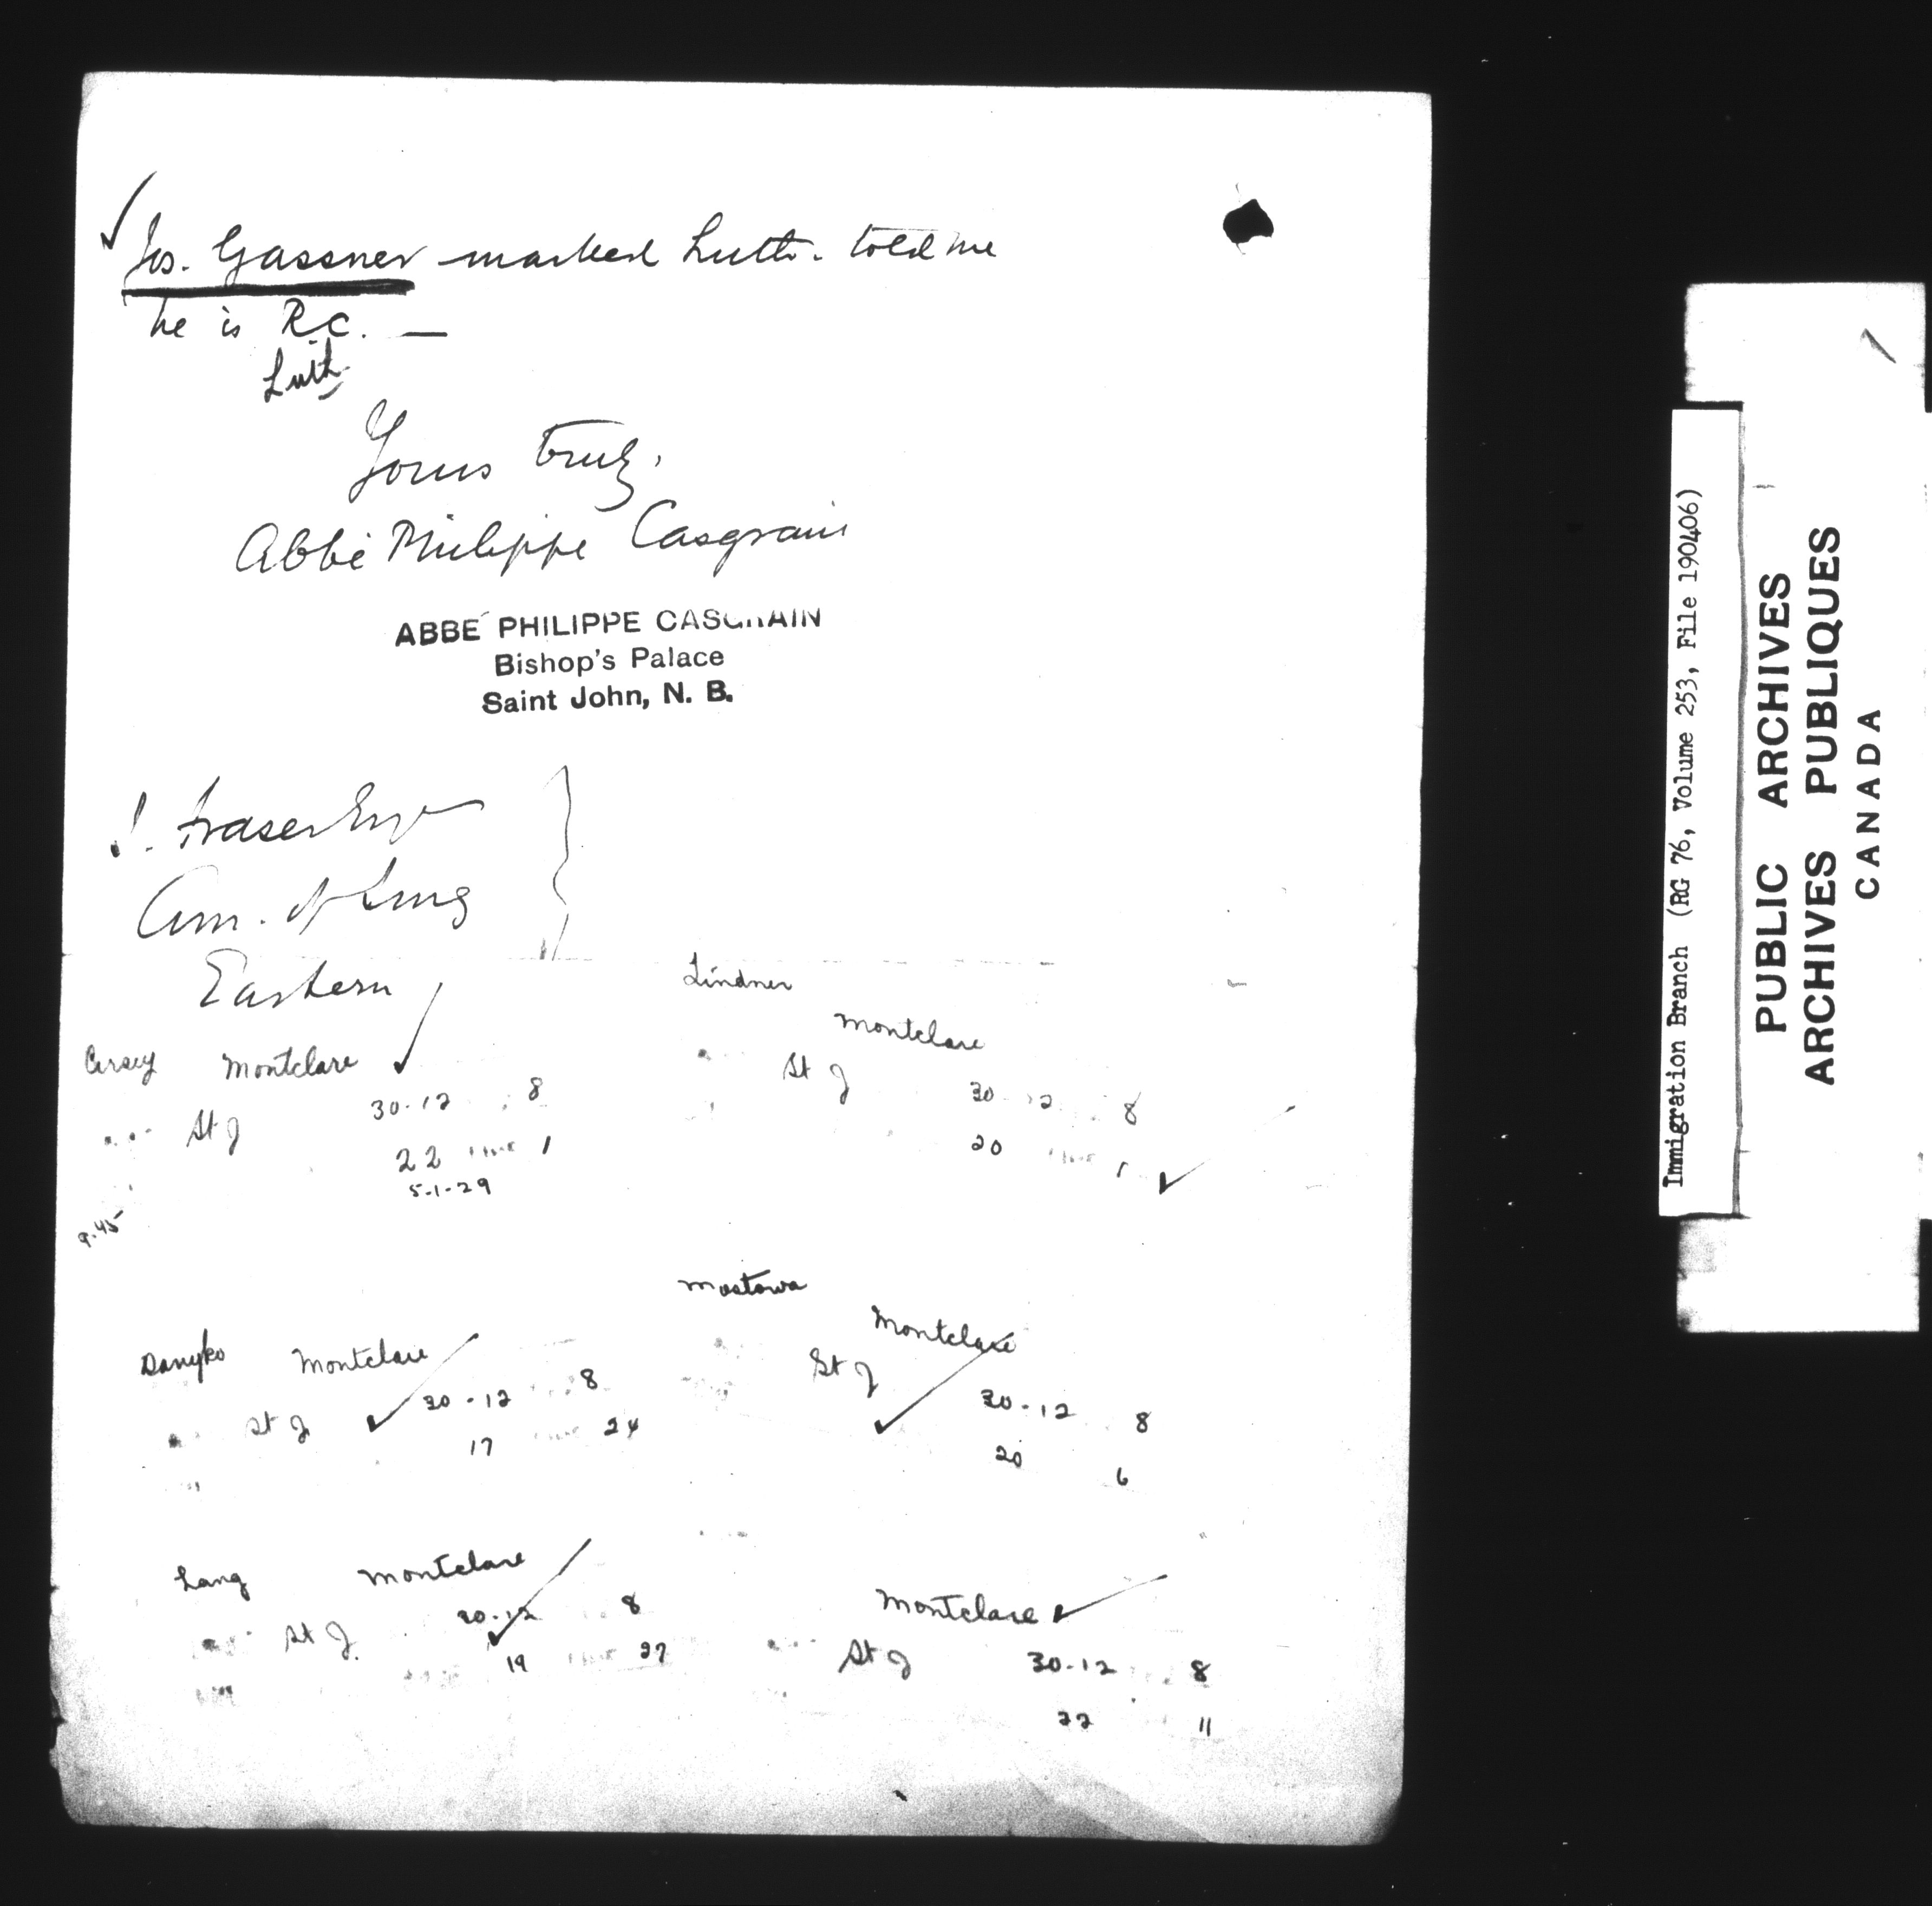 ✓ Jos. Gassner marked Luth. told me
he is R.C. —
Luth
Yours truly,
Abbé Philippe Casgrain
ABBÉ PHILIPPE CASGRAIN
Bishop's Palace
Saint John, N. B.
J. Fraser Esq
Com. of Img
Eastern
Montclare ✓
St J 30-12 8
22 1
5-1-29
9.45
Lindner
Montclare
St J 30-12 8
20 1 ✓
Danyko Montclare
St J ✓ 30-12 8
17 24
Mostowa
Montclare
St J ✓ 30-12 8
20 6
Lang Montclare
St J. 30-12 ✓ 8
19 27
Montclare ✓
St J 30-12 8
22 11
Immigration Branch (RG 76, Volume 253, File 190406)
PUBLIC ARCHIVES
ARCHIVES PUBLIQUES
CANADA